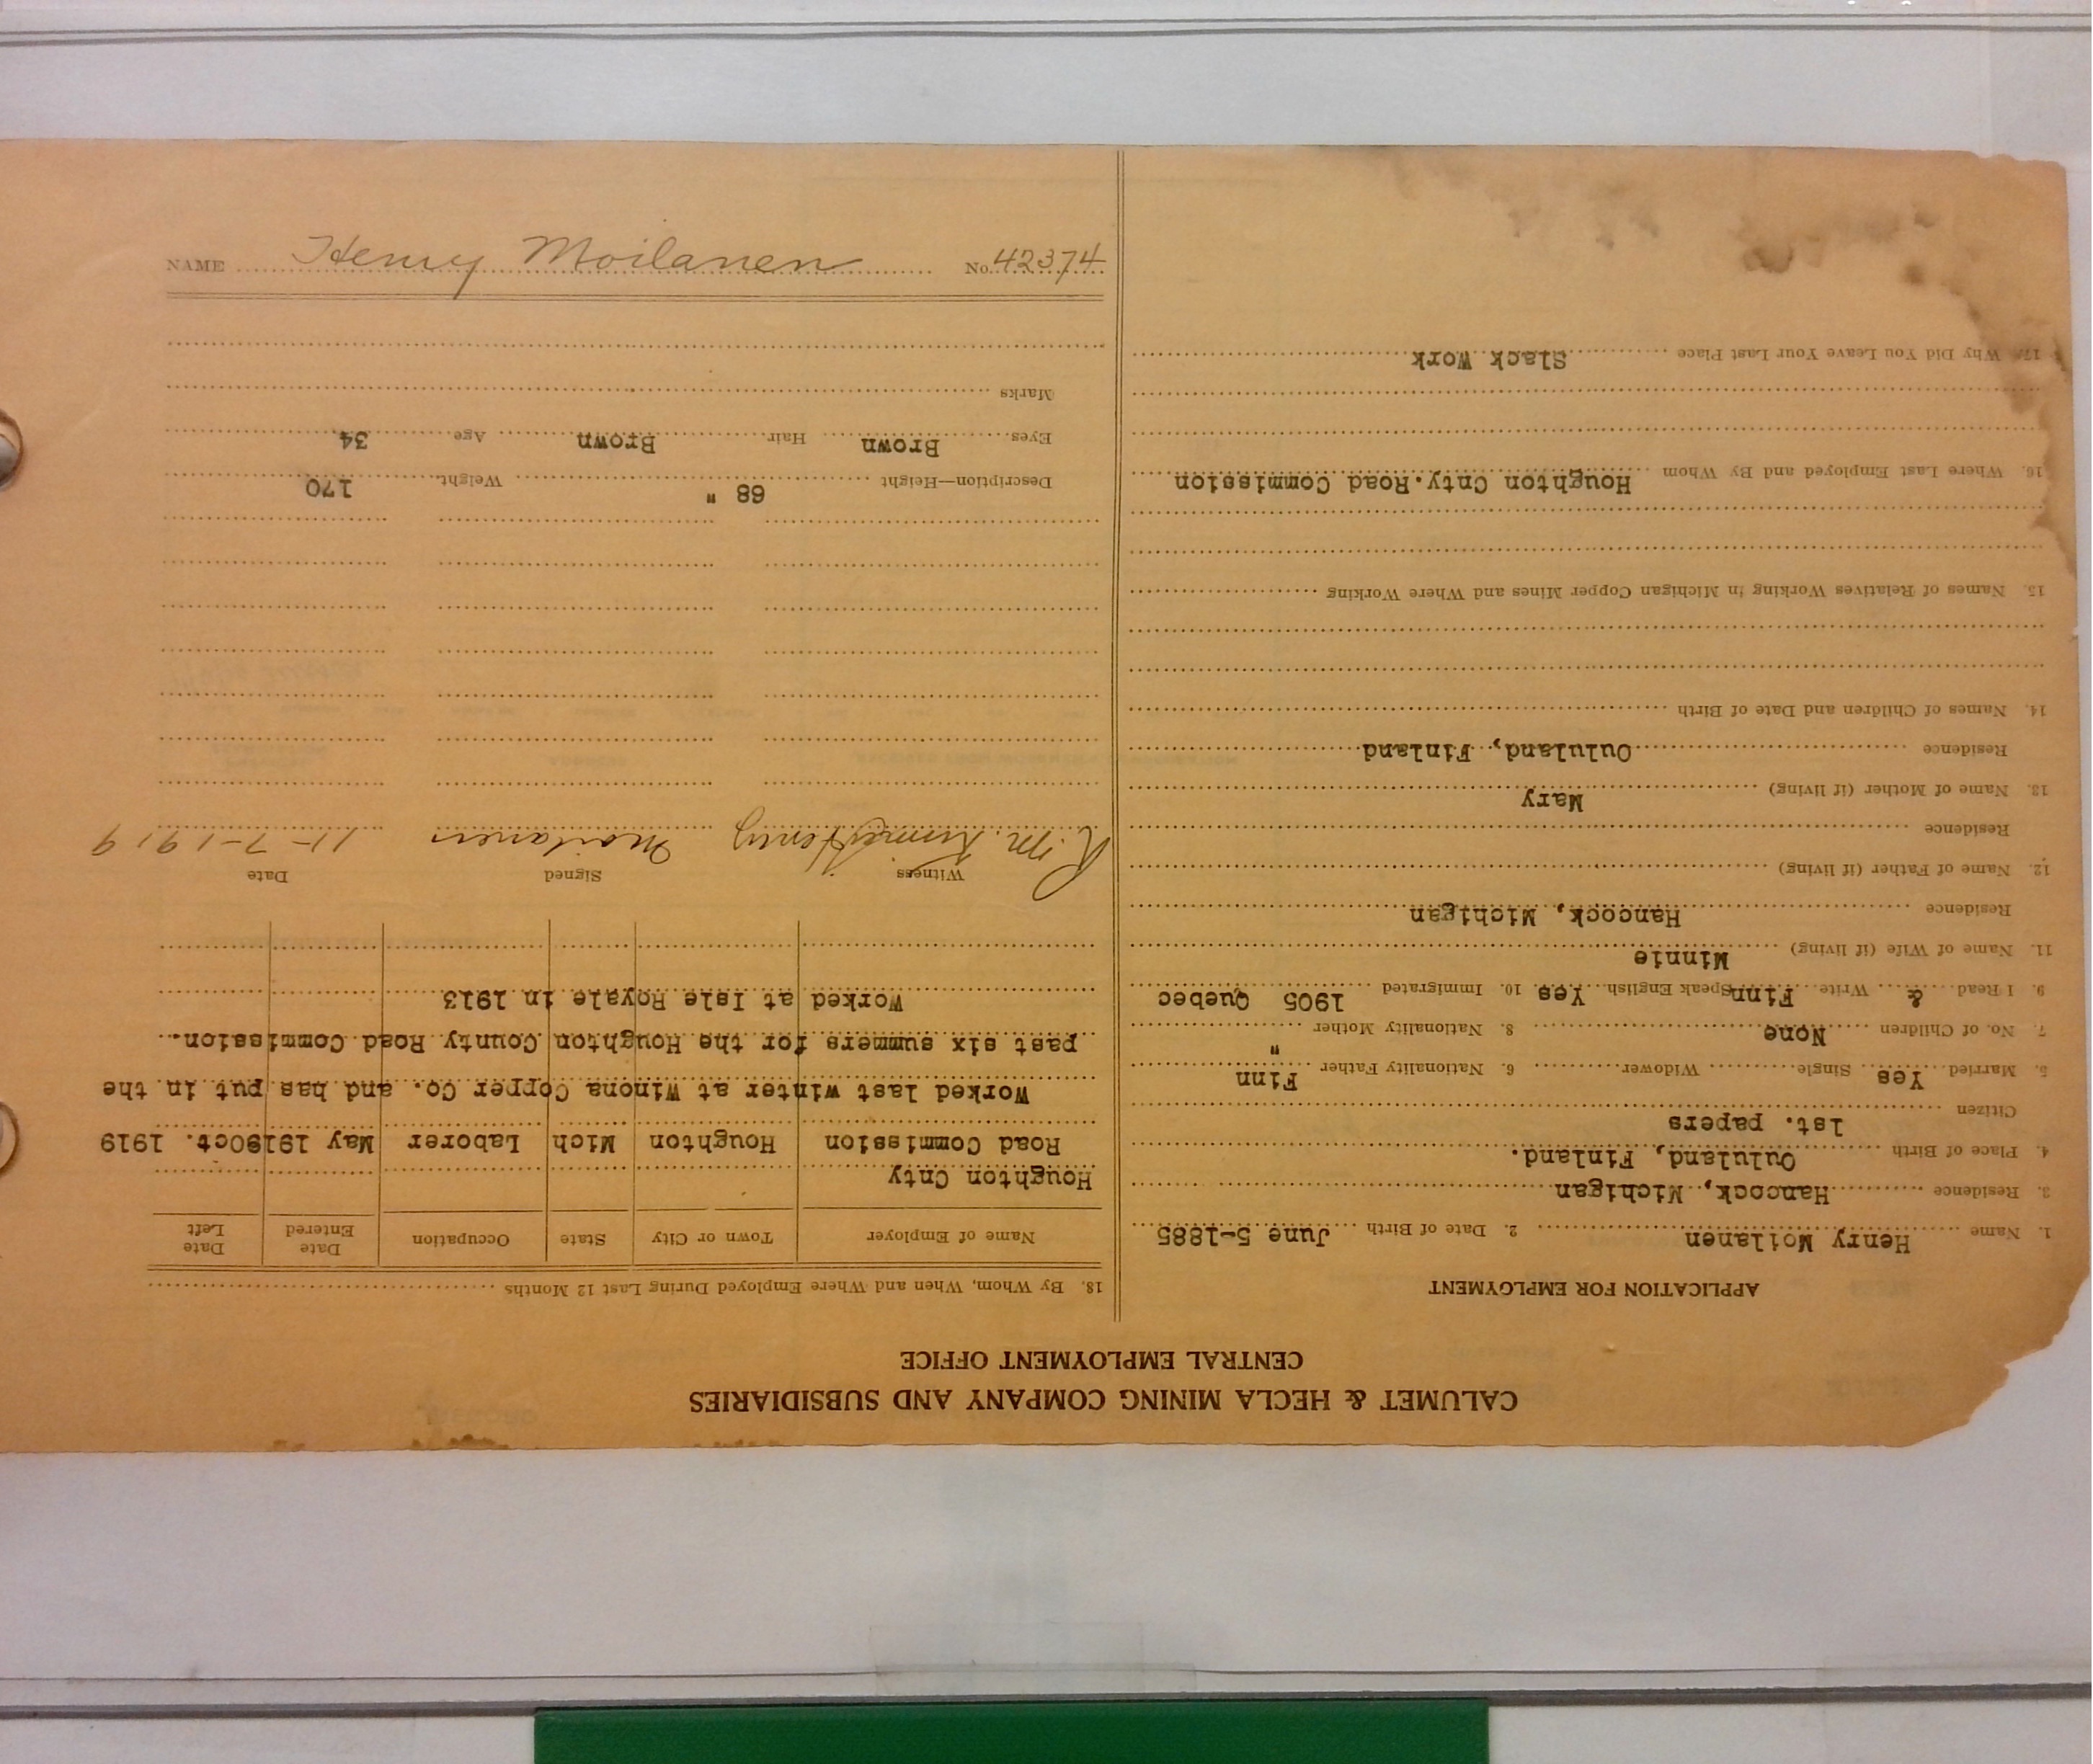 CALUMET & HECLA MINING COMPANY AND SUBSIDIARIES
CENTRAL EMPLOYMENT OFFICE
APPLICATION FOR EMPLOYMENT
1. Name Henry Moilanen 2. Date of Birth June 5-1885
3. Residence Hancock, Michigan
4. Place of Birth Oululand, Finland.
Citizen 1st. papers
5. Married Yes Single Widower 6. Nationality Father Finn
7. No. of Children None 8. Nationality Mother "
9. I Read & Write Finn Speak English Yes 10. Immigrated 1905 Quebec
11. Name of Wife (if living) Minnie
Residence Hancock, Michigan
12. Name of Father (if living)
Residence
13. Name of Mother (if living) Mary
Residence Oululand, Finland
14. Names of Children and Date of Birth
15. Names of Relatives Working in Michigan Copper Mines and Where Working
16. Where Last Employed and By Whom Houghton Cnty.Road Commission
17. Why Did You Leave Your Last Place Slack Work
18. By Whom, When and Where Employed During Last 12 Months
Name of Employer Town or City State Occupation Date Entered Date Left
Houghton Cnty
Road Commission Houghton Mich Laborer May 1919 Oct. 1919
Worked last winter at Winona Copper Co. and has put in the
past six summers for the Houghton County Road Commission.
Worked at Isle Royale in 1913
Witness Signed Date
R. M. Henry Moilanen 11-7-1919
Description—Height 68 " Weight 170
Eyes Brown Hair Brown Age 34
Marks
NAME Henry Moilanen No. 42374